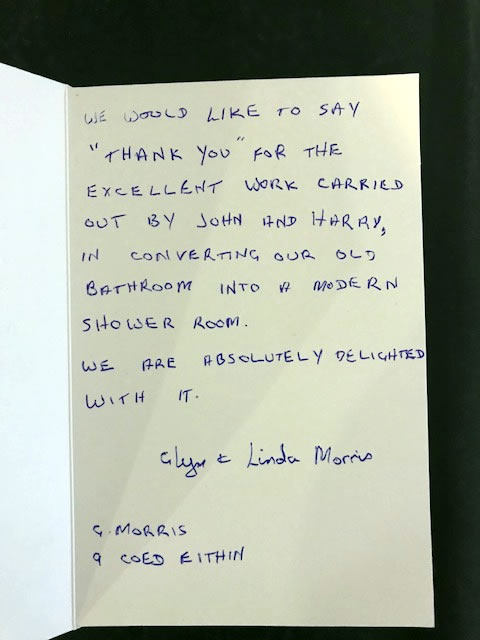 WE WOULD LIKE TO SAY
"THANK YOU" FOR THE
EXCELLENT WORK CARRIED
OUT BY JOHN AND HARRY,
IN CONVERTING OUR OLD
BATHROOM INTO A MODERN
SHOWER ROOM.
WE ARE ABSOLUTELY DELIGHTED
WITH IT.
Glyn & Linda Morris
G. MORRIS
9 COED EITHIN